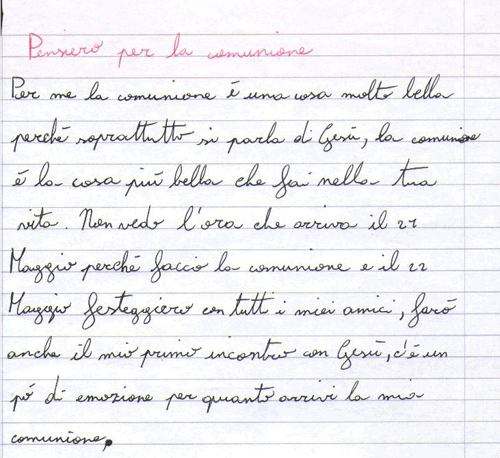 Pensiero per la comunione
Per me la comunione é una cosa molto bella
perché soprattutto si parla di Gesù, la comunione
é la cosa più bella che fai nella tua
vita. Non vedo l'ora che arriva il 21
Maggio perché faccio la comunione e il 22
Maggio festeggiero con tutti i miei amici, faró
anche il mio primo incontro con Gesù, c'é un
pó di emozione per quanto arrivi la mia
comunione.